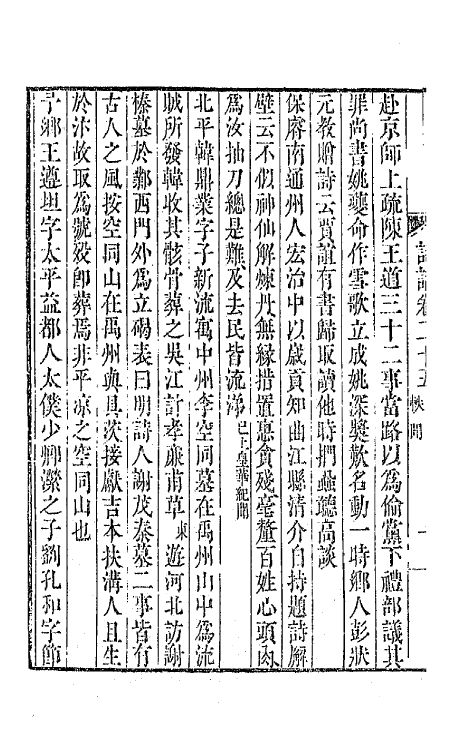 詩話卷二十五 軼聞 一
赴京師上疏陳王道三十二事當路以爲偷黨下禮部議其
罪尚書姚夔命作雪歌立成姚深奬歎名動一時鄉人彭狀
元教贈詩云賈誼有書歸取讀他時捫蝨聽高談
保𪪺南通州人宏治中以歲貢知曲江縣清介自持題詩解
壁云不似神仙解煉丹無緣措置惠貪殘毫釐百姓心頭肉
爲汝抽刀總是難及去民皆流涕已上皇華紀聞
北平韓鼎業字子新流寓中州李空同墓在禹州山中爲流
賊所發韓收其骸骨葬之吳江計孝廉甫草東遊河北訪謝
榛墓於鄴西門外爲立碣表曰明詩人謝茂秦墓二事皆有
古人之風按空同山在禹州與具茨接獻吉本扶溝人且生
於汴故取爲號殁卽葬焉非平凉之空同山也
子鄉王遵坦字太平益都人太僕少卿濚之子劉孔和字節